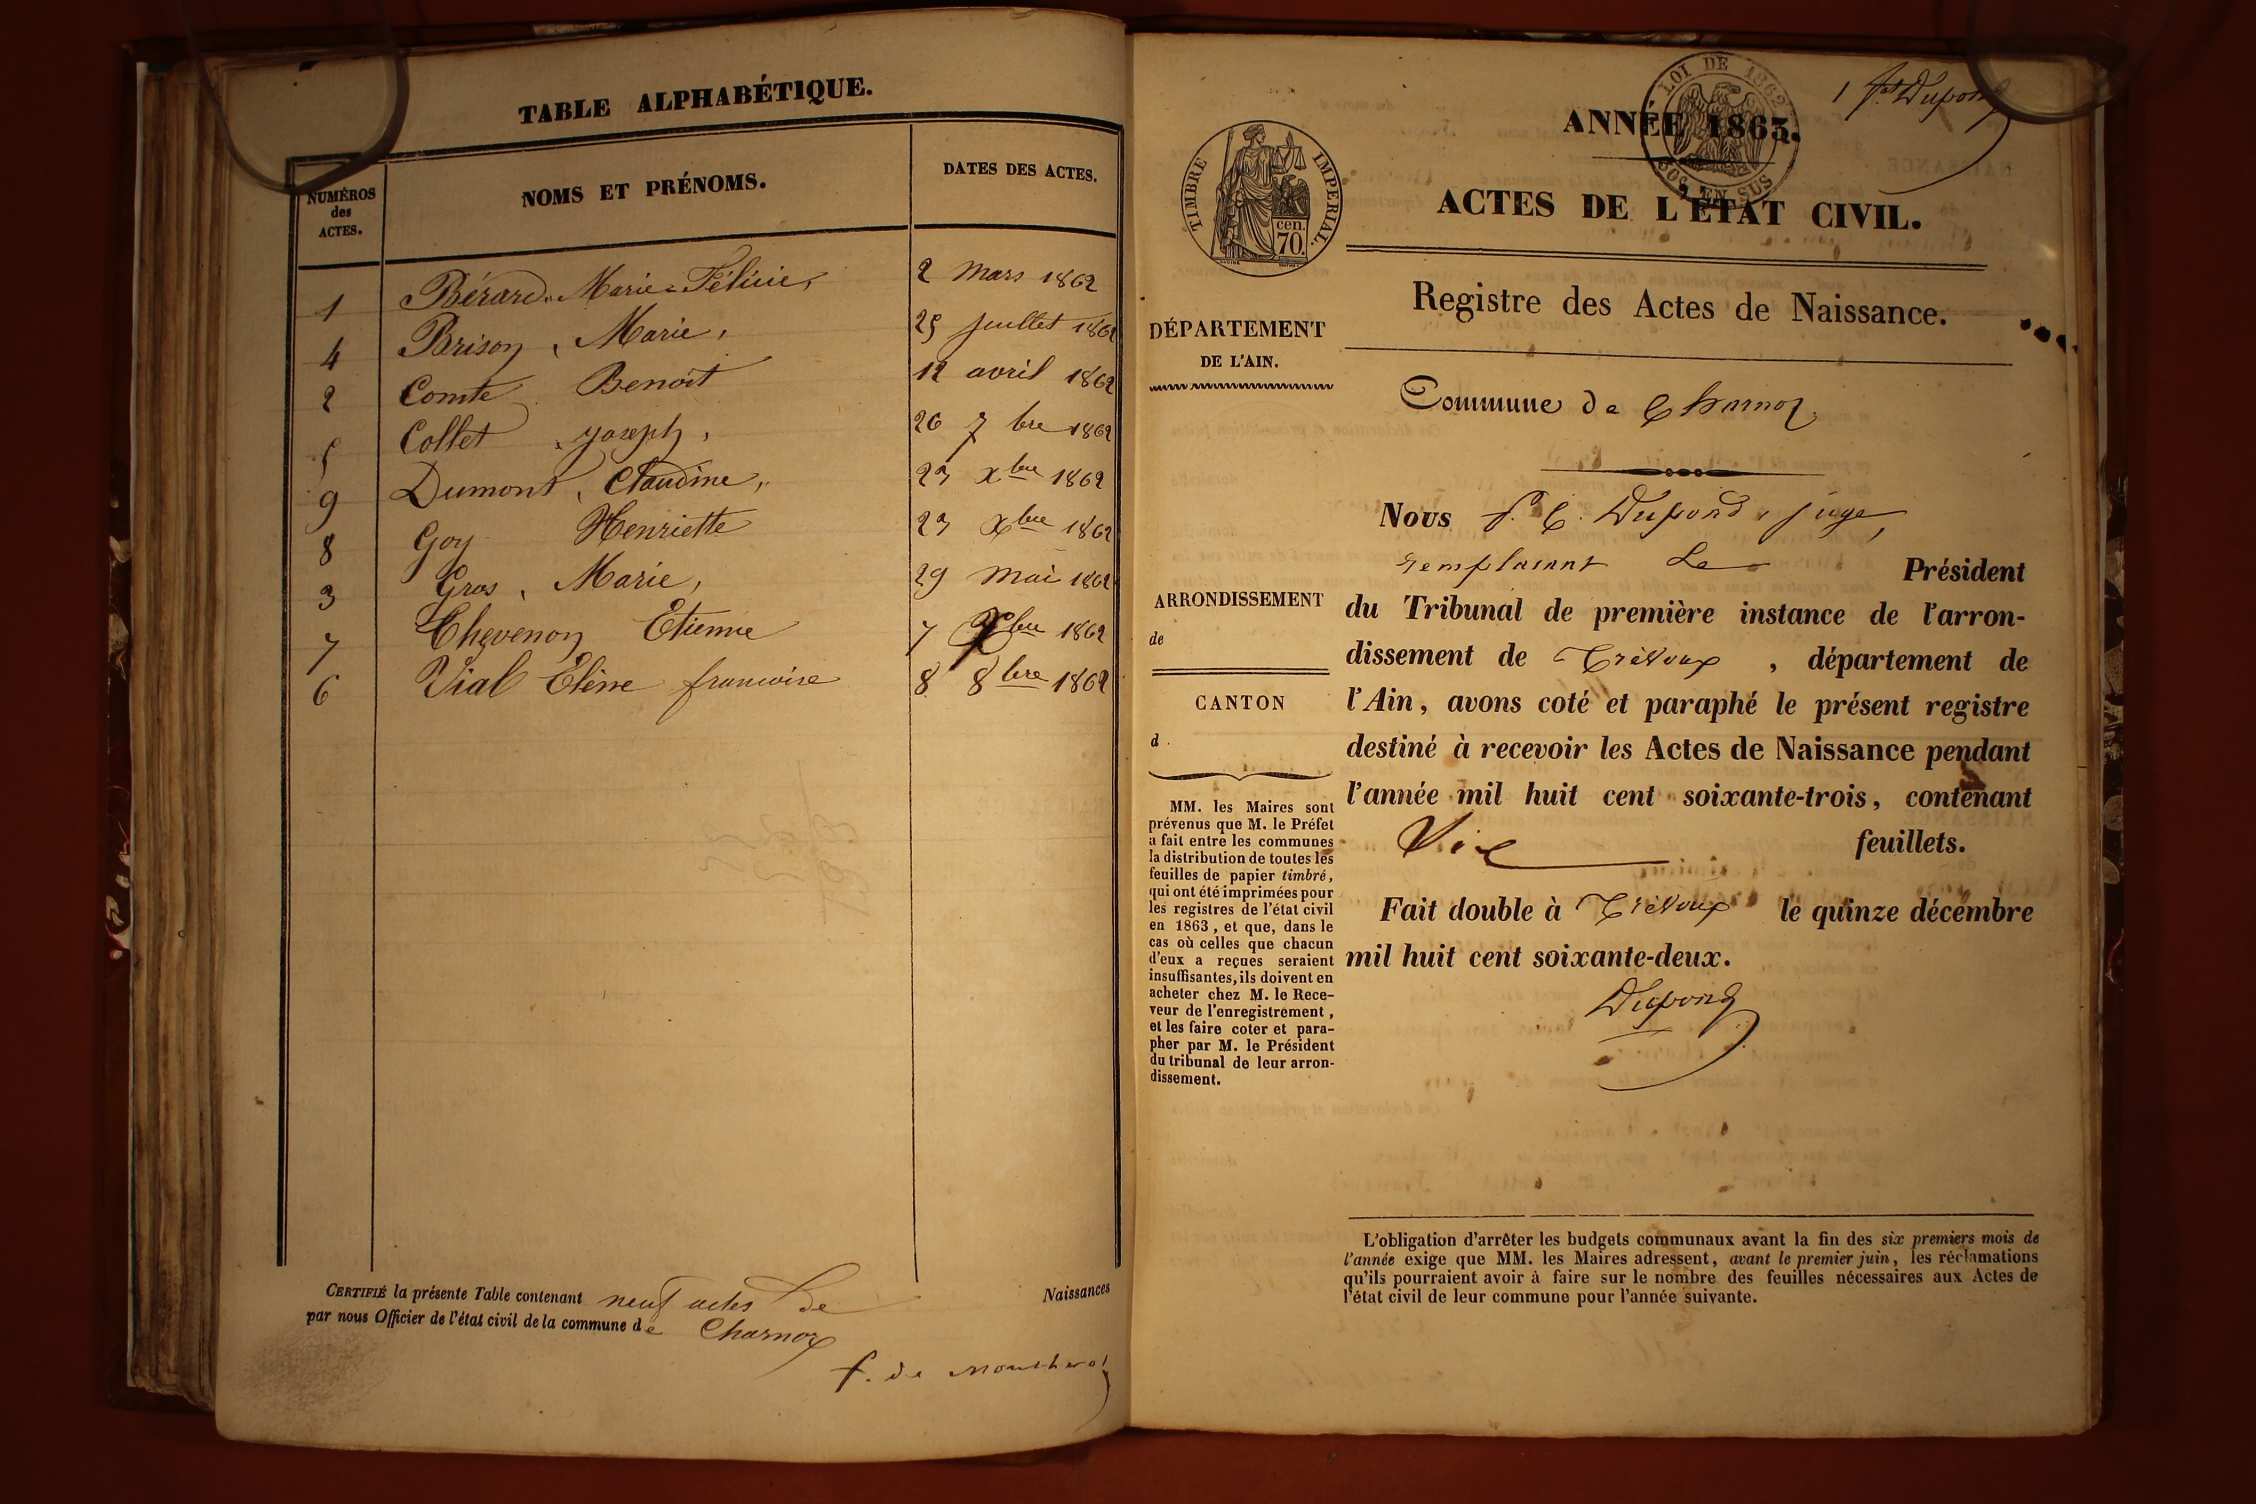 TABLE ALPHABÉTIQUE.
NUMÉROS des ACTES. NOMS ET PRÉNOMS. DATES DES ACTES.
1 Bérard Marie-Félicie, 2 mars 1862
4 Brison, Marie, 25 juillet 1862
2 Comte Benoît 12 avril 1862
5 Collet Joseph, 26 7bre 1862
9 Dumont, Claudine, 23 Xbre 1862
8 Goy Henriette 23 Xbre 1862
3 Gros, Marie, 29 mai 1862
7 Thevenon Etienne 7 Xbre 1862
6 Vial Elène francoise 8 8bre 1862
CERTIFIÉ la présente Table contenant neuf actes de Naissances
par nous Officier de l'état civil de la commune de Charnoz
f. de
1 Dupond
LOI DE 1862
50c EN SUS
TIMBRE IMPERIAL.
cen. 70.
ANNÉE 1863.
ACTES DE L'ÉTAT CIVIL.
Registre des Actes de Naissance.
DÉPARTEMENT
DE L'AIN.
ARRONDISSEMENT
de
CANTON
d
MM. les Maires sont
prévenus que M. le Préfet
a fait entre les communes
la distribution de toutes les
feuilles de papier timbré,
qui ont été imprimées pour
les registres de l'état civil
en 1863, et que, dans le
cas où celles que chacun
d'eux a reçues seraient
insuffisantes, ils doivent en
acheter chez M. le Rece-
veur de l'enregistrement,
et les faire coter et para-
pher par M. le Président
du tribunal de leur arron-
dissement.
Commune de Charnoz
Nous f. C. Dupond, juge,
remplaçant le Président
du Tribunal de première instance de l'arron-
dissement de Trévoux, département de
l'Ain, avons coté et paraphé le présent registre
destiné à recevoir les Actes de Naissance pendant
l'année mil huit cent soixante-trois, contenant
feuillets.
Fait double à Trévoux le quinze décembre
mil huit cent soixante-deux.
Dupond
L'obligation d'arrêter les budgets communaux avant la fin des six premiers mois de
l'année exige que MM. les Maires adressent, avant le premier juin, les réclamations
qu'ils pourraient avoir à faire sur le nombre des feuilles nécessaires aux Actes de
l'état civil de leur commune pour l'année suivante.